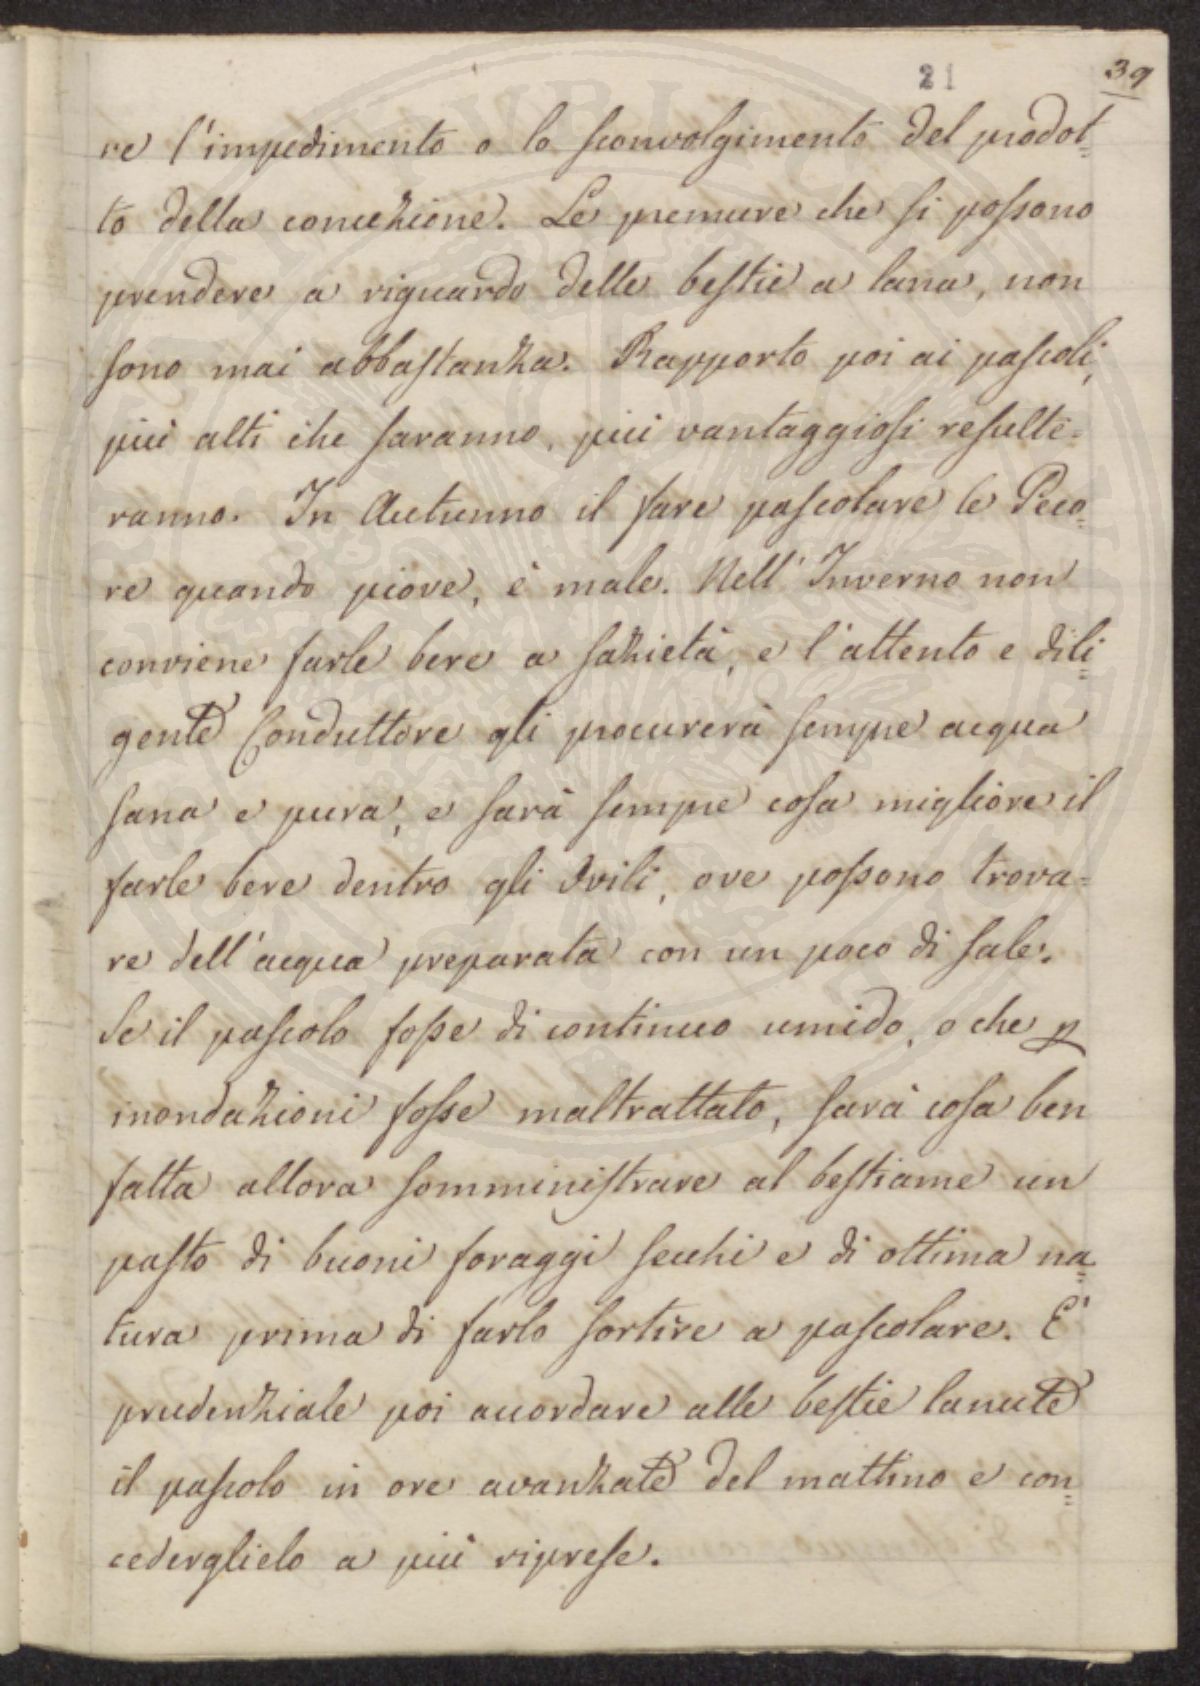 21
39
re l'impedimento o lo sconvolgimento del prodot=
to della concezione. Le premure che si possono
prendere a riguardo delle bestie a lana, non
sono mai abbastanza. Rapporto poi ai pascoli,
più alti che saranno, più vantaggiosi resulte=
ranno. In Autunno il fare pascolare le Peco=
re quando piove, è male. Nell' Inverno non
conviene farle bere a sazietà, e l'attento e dili=
gente Conduttore gli procurerà sempre acqua
sana e pura, e sarà sempre cosa migliore il
farle bere dentro gli Ovili, ove possono trova=
re dell'acqua preparata con un poco di sale.
Se il pascolo fosse di continuo umido, o che p
inondazioni fosse maltrattato, sarà cosa ben
fatta allora somministrare al bestiame un
pasto di buoni foraggi secchi e di ottima na=
tura prima di farlo sortire a pascolare. E'
prudenziale poi accordare alle bestie lanute
il pascolo in ore avanzate del mattino e con=
cederglielo a più riprese.